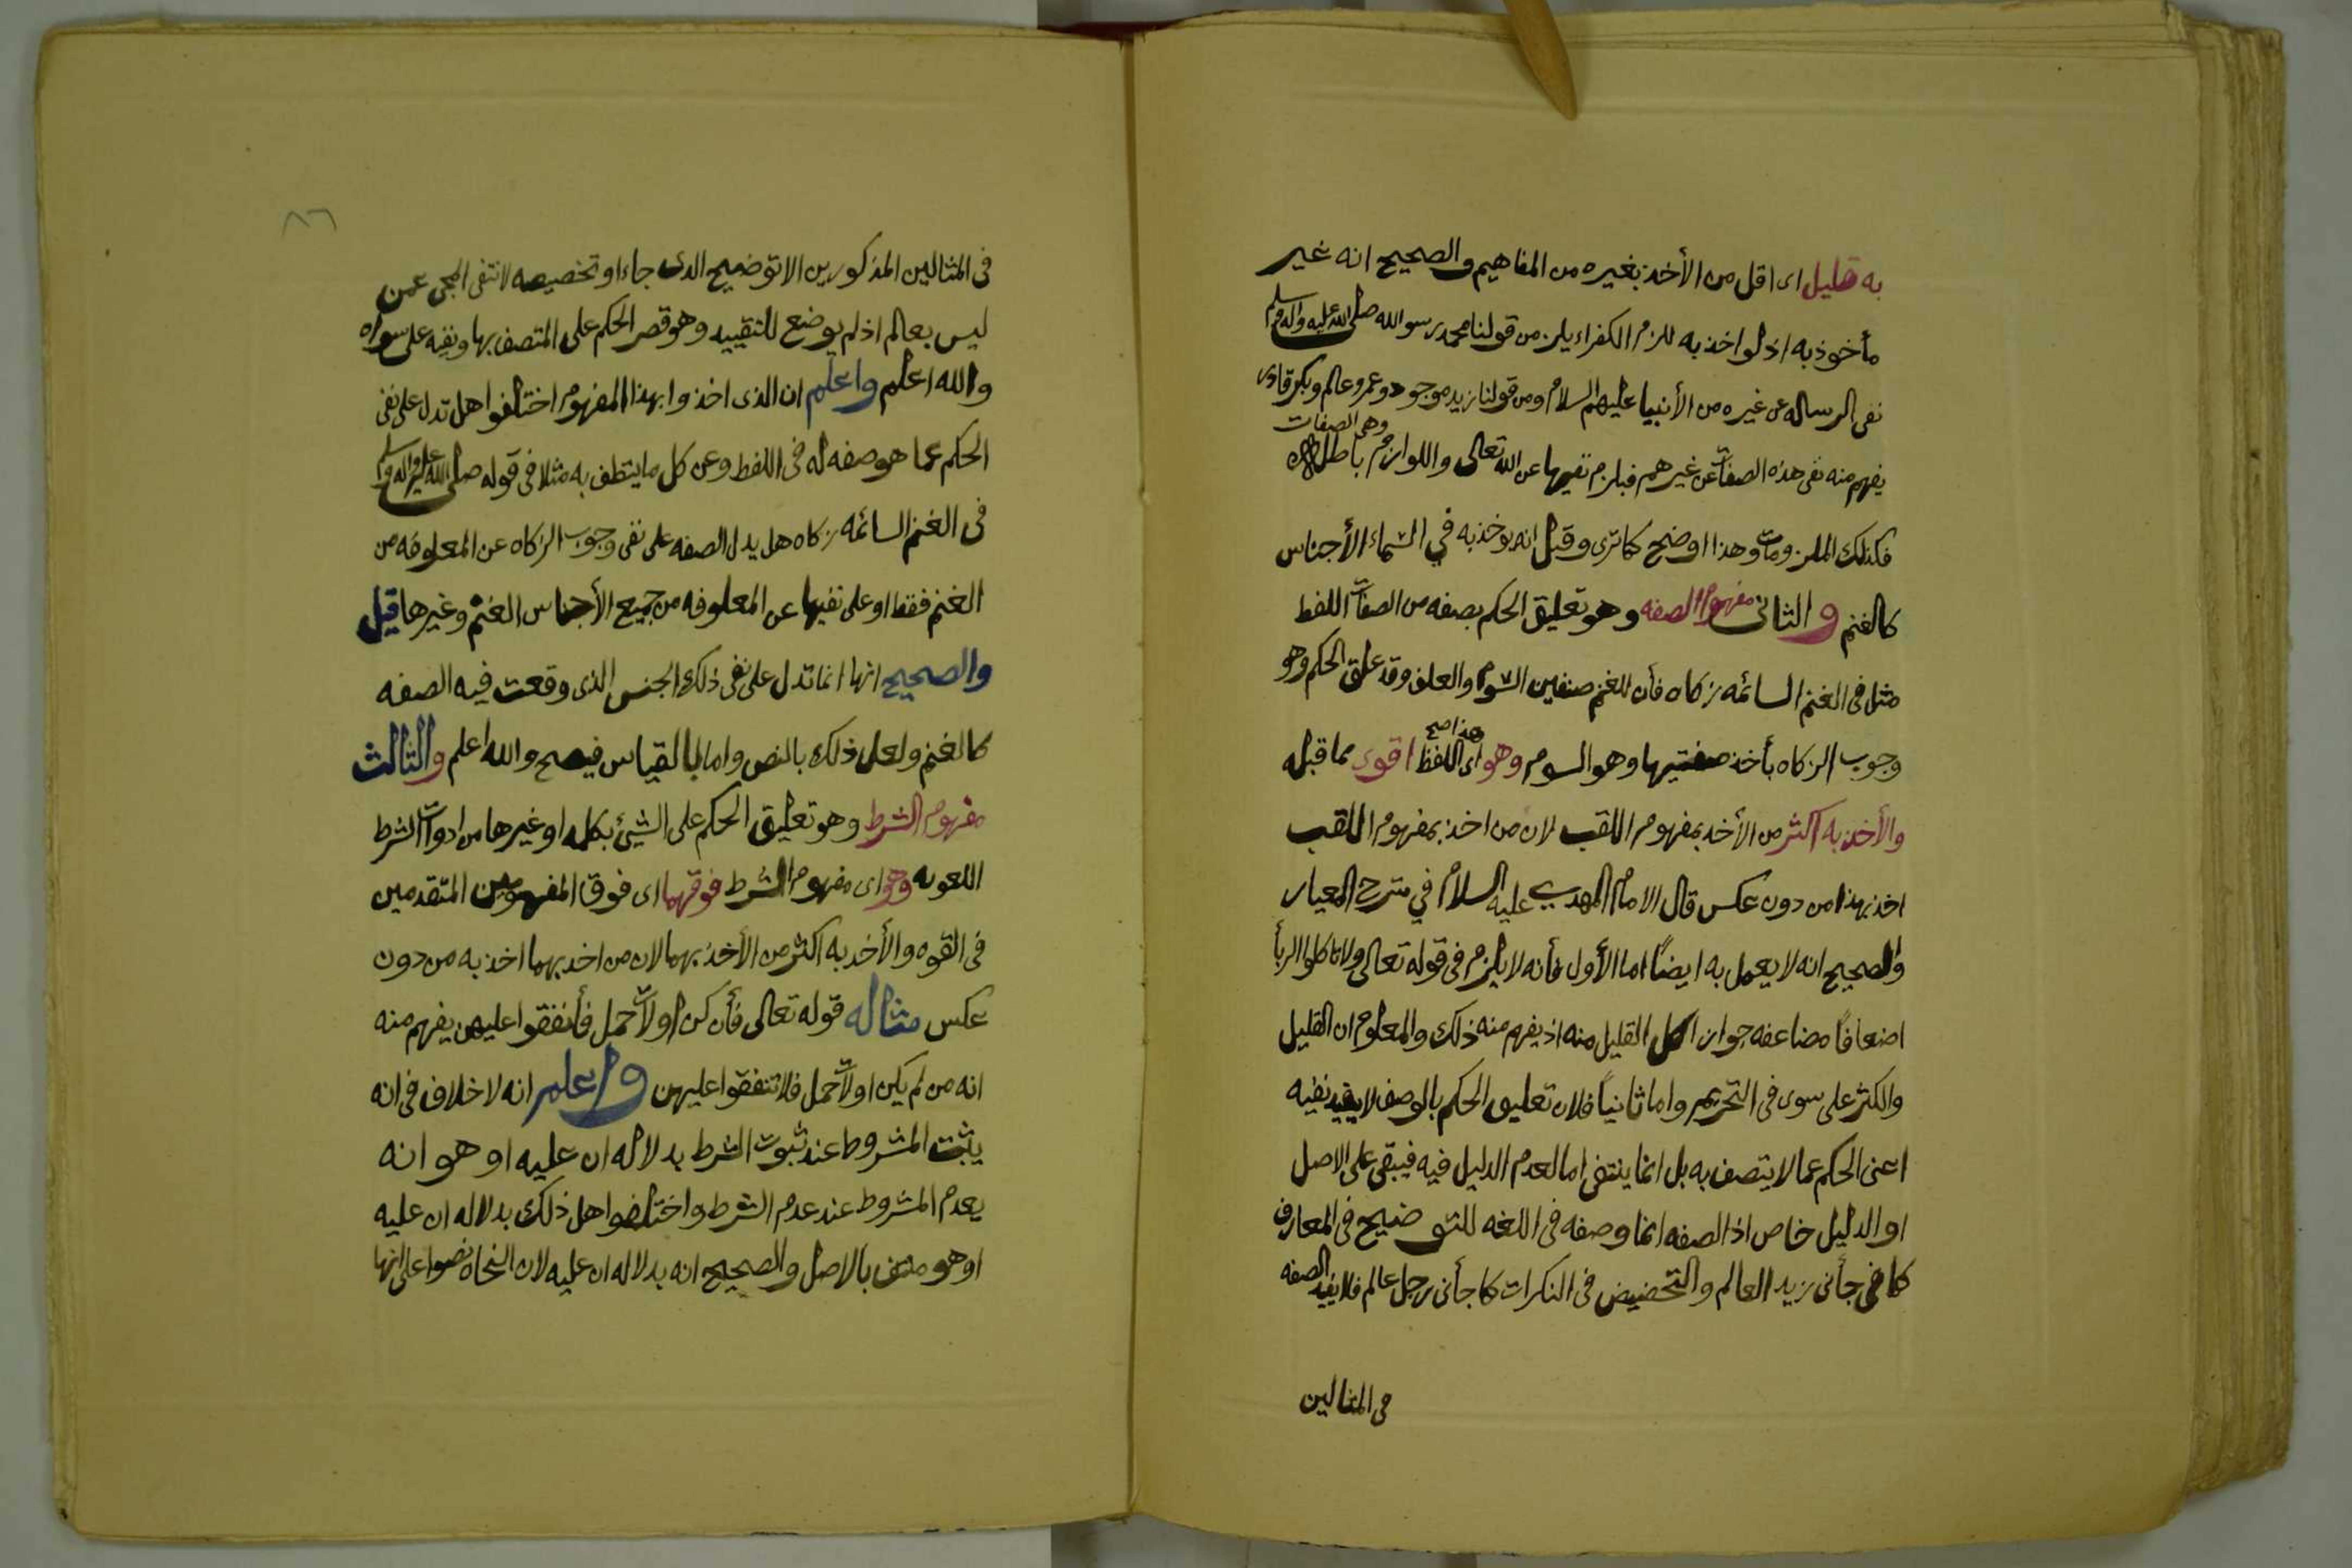 به قليل اى اقل من الأخذ بغيره من المفاهيم والصحيح انه غير
مأخوذ به اذ لو اخذ به للزم الكفر اذ يلزم من قولنا محمد رسو الله صلى الله عليه واله وسلم
نفى الرساله عن غيره من الأنبيا عليهم السلام ومن قولنا زيد موجود وعمرو عالم وبكر قادر
وهى الصفات
يفهم منه نفى هذه الصفات عن غيرهم فيلزم نفيها عن الله تعالى واللوازم باطل
فكذلك الملزومات وهذا اوضح كما ترى وقيل انه يوخذ به في اسماء الأجناس
كالغنم والثانى مفهوم الصفه وهو تعليق الحكم بصفه من الصفات اللفط
مثل فى الغنم السائمه زكاه فأن للغنم صنفين السوم والعلف وقد علق الحكم وهو
هذا صح
وجوب الزكاه بأخذ صفتيها وهو السوم وهو اى اللفظ اقوى مما قبله
والأخذ به اكثر من الأخذ بمفهوم اللقب لان من اخذ بمفهوم اللقب
اخذ بهذا من دون عكس قال الامام المهدي عليه السلام في شرح المعيار
والصحيح انه لا يعمل به ايضًا اما الأول فأنه لا يلزم فى قوله تعالى ولا تاكلوا الربأ
اضعافًا مضاعفه جواز اكل القليل منه اذ يفهم منه ذلك والمعلوم ان القليل
والكثر على سوى فى التحريم واما ثانيًا فلان تعليق الحكم بالوصف لا يفيد نفيه
اعنى الحكم عما لا يتصف به بل انما ينتفى اما لعدم الدليل فيه فيبقى على الاصل
او الدليل خاص اذ الصفه انما وصفه فى اللغه للتوضيح فى المعارف
كما فى جأنى زيد العالم والتخضيض فى النكرات كما جأنى رجل عالم فلا يفيد الصفه
فى المثالين
٨٦
فى المثالين المذكورين الا توضيح الذى جاء او تخصيصه لا نتفى المجى عمن
ليس بعالم اذ لم يوضع للتقييد وهو قصر الحكم على المتصف بها ونفيه على سواه
والله اعلم واعلم ان الذى اخذوا بهذا المفهوم اختلفوا هل تدل على نفى
الحكم عما هو صفه له فى اللفط وعن كل ما يتظف به مثلا فى قوله صلى الله عليه واله وسلم
فى الغنم السائمه زكاه هل يدل الصفه على نفى وجوب الزكاه عن المعلوفه من
الغنم فقط او على نفيها عن المعلوفه من جميع الأجناس الغنم وغيرها قيل
والصحيح انها انما تدل على نفى ذلك الجنس الذى وقعت فيه الصفه
كالغنم ولعل ذلك بالنص واما بالقياس فيصح والله اعلم والثالث
مفهوم الشرط وهو تعليق الحكم على الشيئ بكلمه او غيرها من ادوات الشرط
اللعويه وهو اى مفهوم الشرط فوقهما اى فوق المفهومين المتقدمين
فى القوه والأخذ به اكثر من الأخذ بهما لان من اخذ بهما اخذ به من دون
عكس مثاله قوله تعالى فأن كن اولات حمل فأنفقوا عليهن يفهم منه
انه من لم يكن اولات حمل فلا تنفقوا عليهن واعلم انه لا خلاف فى انه
يثبت المشروط عند ثبوت الشرط بدلاله ان عليه او هو انه
يعدم المشروط عند عدم الشرط واختلفوا هل ذلك بدلاله ان عليه
او هو منتف بالاصل والصحيح انه بدلاله ان عليه لان النحاه نصوا على انها